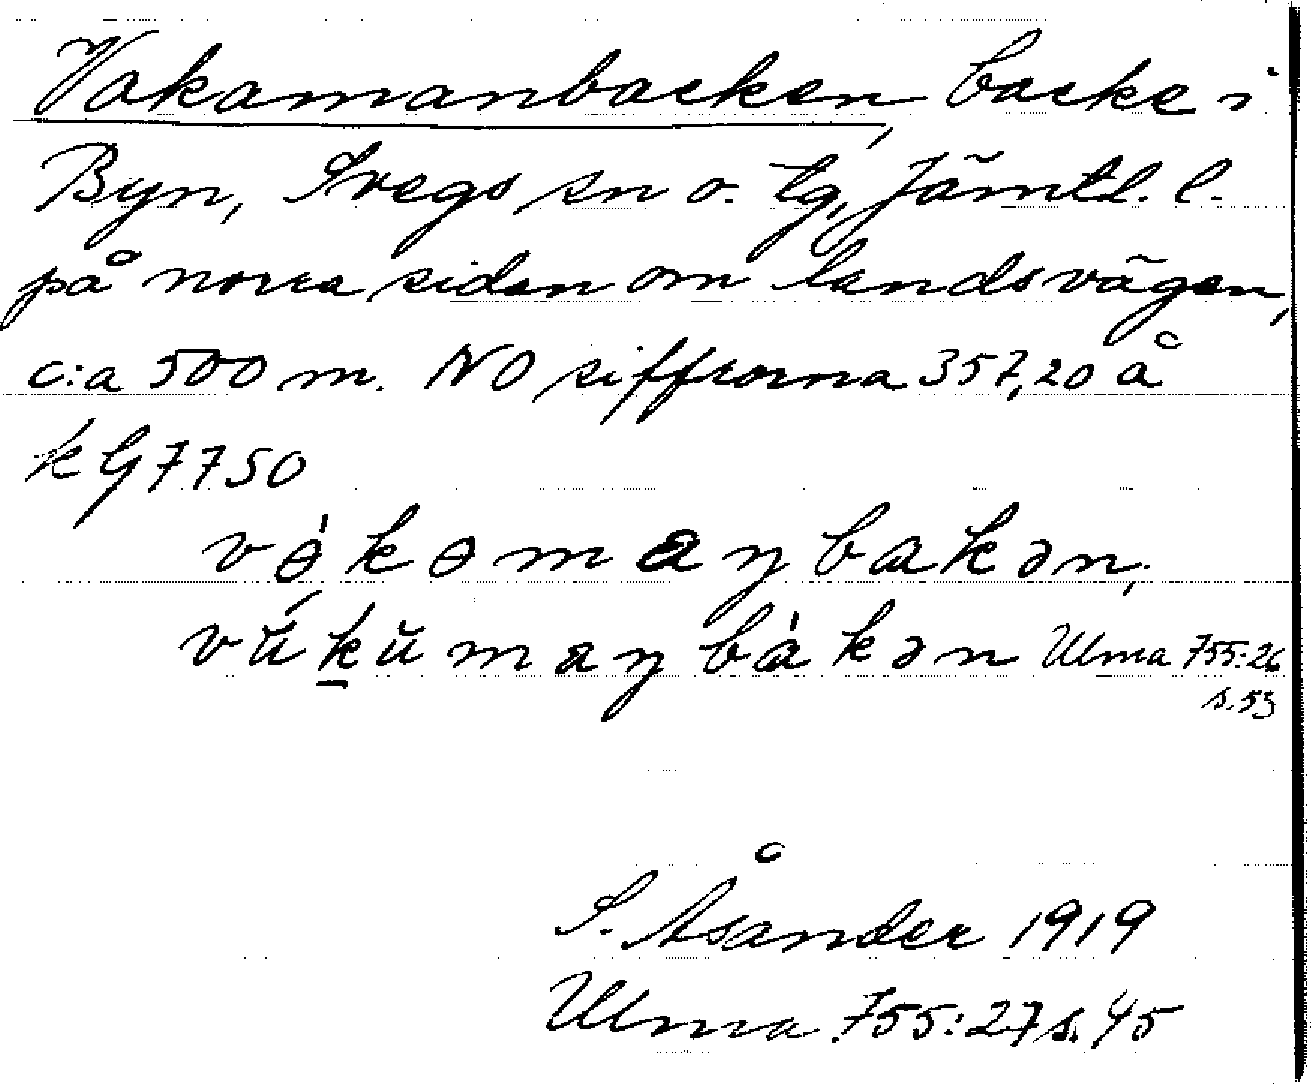 Vakamanbacken, backe i
Byn, Svegs sn o. tg, Jämtl. l.
på norra sidan om landsvägen,
c:a 500 m. NO siffrorna 357,20 å
k G 7750
vɵ̀kɵmaŋbakən,
vŭ́k̲ŭmaŋbàkən Ulma 755:26
s. 53
S. Åsander 1919
Ulma 755:27 s. 45